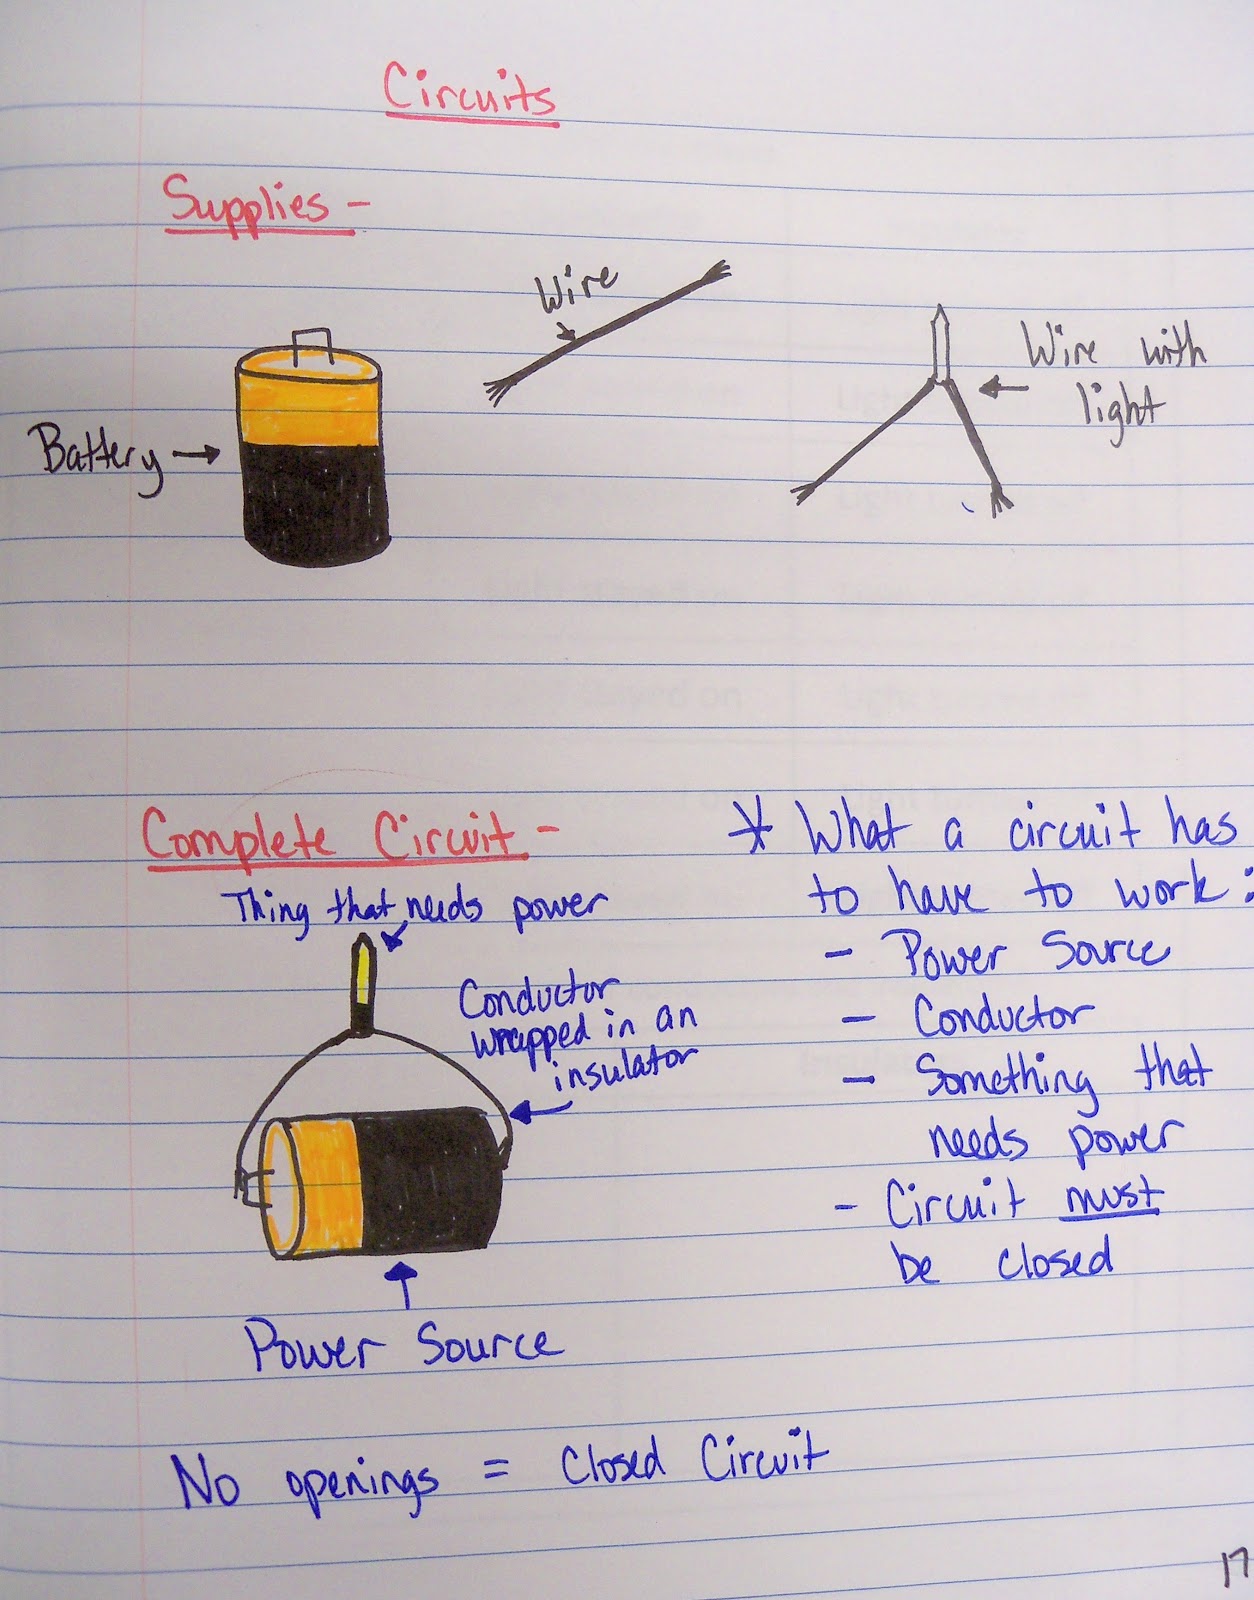 Circuits
Supplies -
Wire
Wire with
light
Battery
Complete Circuit -
Thing that needs power
Conductor
wrapped in an
insulator
Power Source
* What a circuit has
to have to work:
- Power Source
- Conductor
- Something that
needs power
- Circuit must
be closed
No openings = Closed Circuit
17